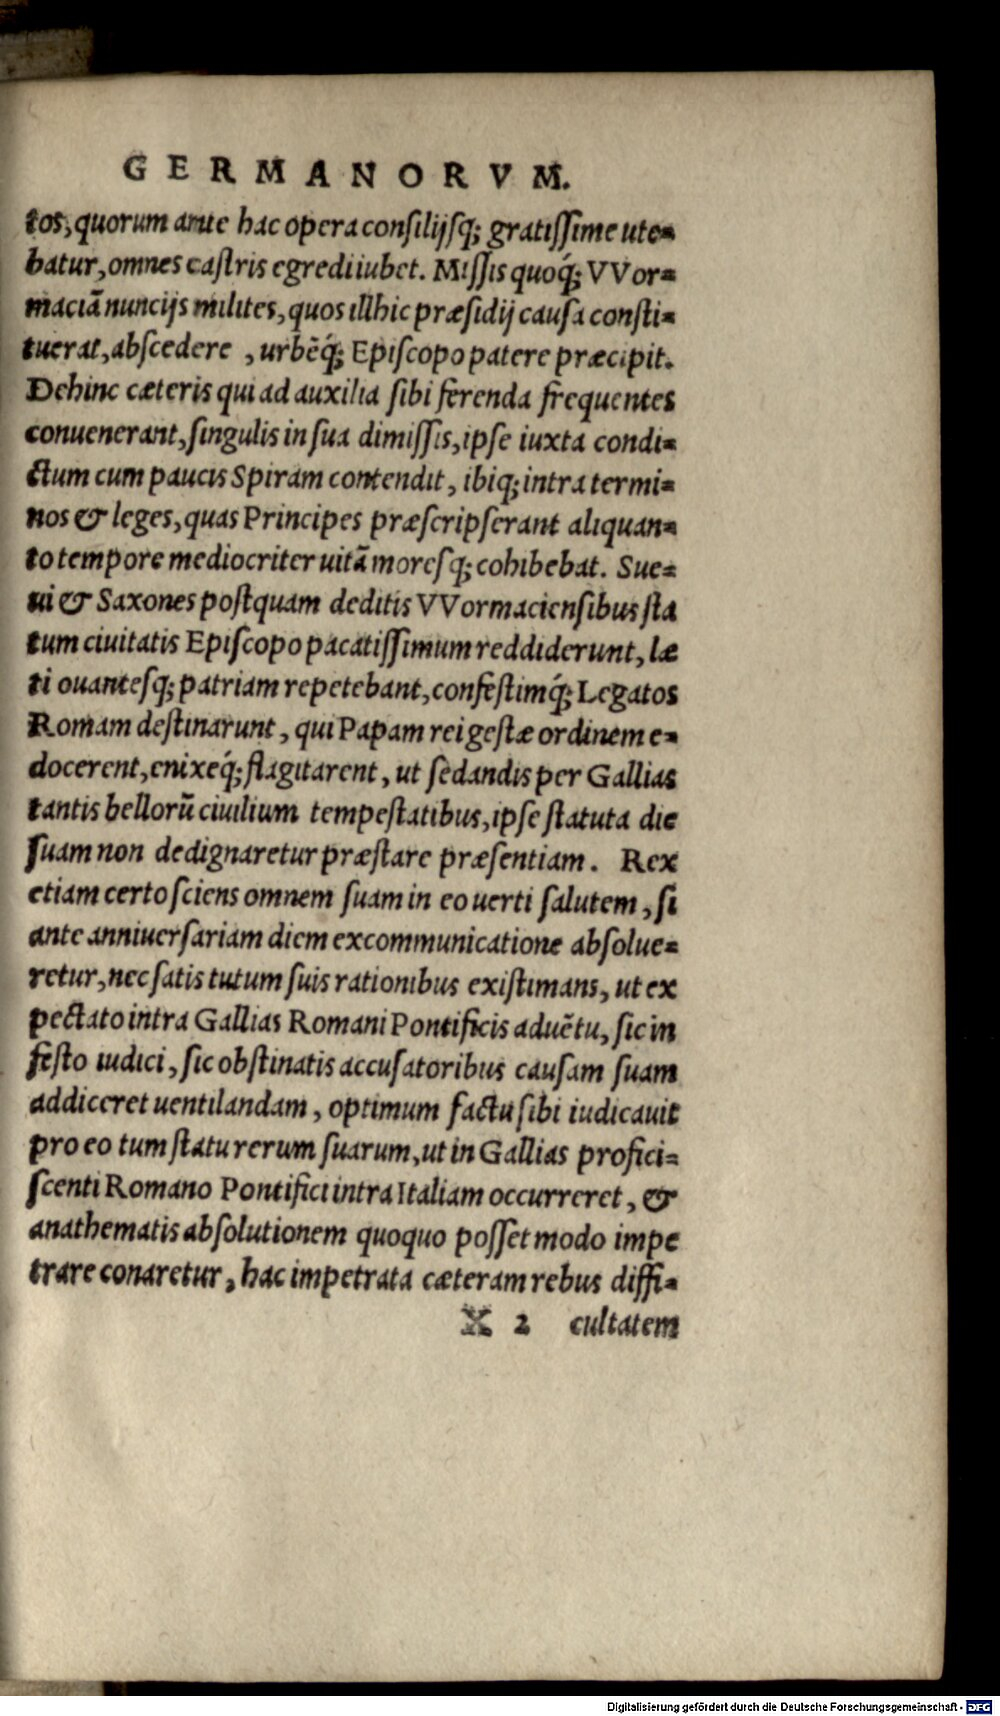 GERMANORVM.
tos, quorum ante hac opera consilijsq́; gratissime ute-
batur, omnes castris egredi iubet. Missis quoq́; VVor-
maciā nuncijs milites, quos illhic præsidij causa consti-
tuerat, abscedere, urbēq́; Episcopo patere præcipit.
Dehinc cæteris qui ad auxilia sibi ferenda frequentes
conuenerant, singulis in sua dimissis, ipse iuxta condi-
ctum cum paucis Spiram contendit, ibiq; intra termi-
nos & leges, quas Principes præscripserant aliquan-
to tempore mediocriter uitā moresq; cohibebat. Sue-
ui & Saxones postquam deditis VVormaciensibus sta
tum ciuitatis Episcopo pacatissimum reddiderunt, læ
ti ouantesq; patriam repetebant, confestimq́; Legatos
Romam destinarunt, qui Papam rei gestæ ordinem e-
docerent, enixeq́; flagitarent, ut sedandis per Gallias
tantis bellorū ciuilium tempestatibus, ipse statuta die
suam non dedignaretur præstare præsentiam. Rex
etiam certo sciens omnem suam in eo uerti salutem, si
ante anniuersariam diem excommunicatione absolue-
retur, nec satis tutum suis rationibus existimans, ut ex
pectato intra Gallias Romani Pontificis aduētu, sic in
festo iudici, sic obstinatis accusatoribus causam suam
addiceret uentilandam, optimum factu sibi iudicauit
pro eo tum statu rerum suarum, ut in Gallias profici-
scenti Romano Pontifici intra Italiam occurreret, &
anathematis absolutionem quoquo posset modo impe
trare conaretur, hac impetrata cæteram rebus diffi-
X 2 cultatem
Digitalisierung gefördert durch die Deutsche Forschungsgemeinschaft - DFG